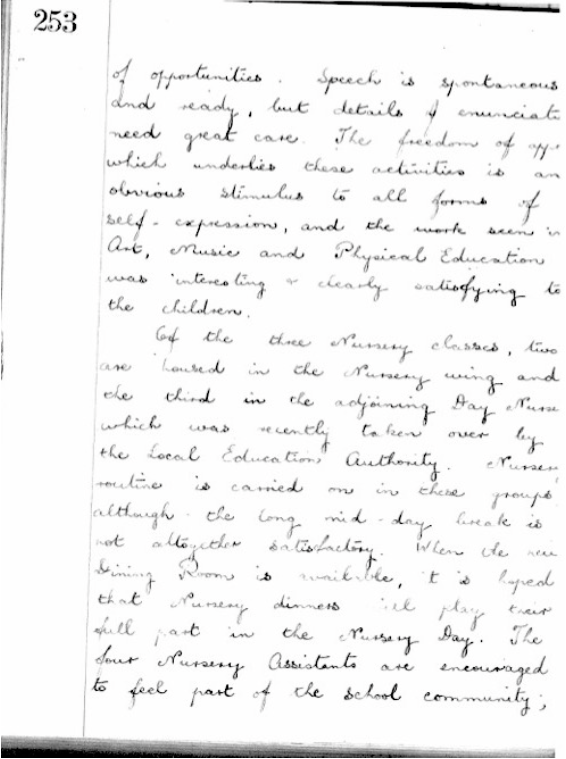 253
of opportunities. Speech is spontaneous
and ready, but details of enunciati
need great care. The freedom of app
which underlies these activities is an
obvious stimulus to all forms of
self-expression, and the work seen in
Art, Music and Physical Education
was interesting & clearly satisfying to
the children.
Of the three Nursery classes, two
are housed in the Nursery wing and
the third in the adjoining Day Nurse
which was recently taken over by
the Local Education Authority. Nursery
routine is carried on in these groups
although the long mid-day break is
not altogether satisfactory. When the new
Dining Room is available, it is hoped
that Nursery dinners will play their
full part in the Nursery Day. The
four Nursery Assistants are encouraged
to feel part of the school community;